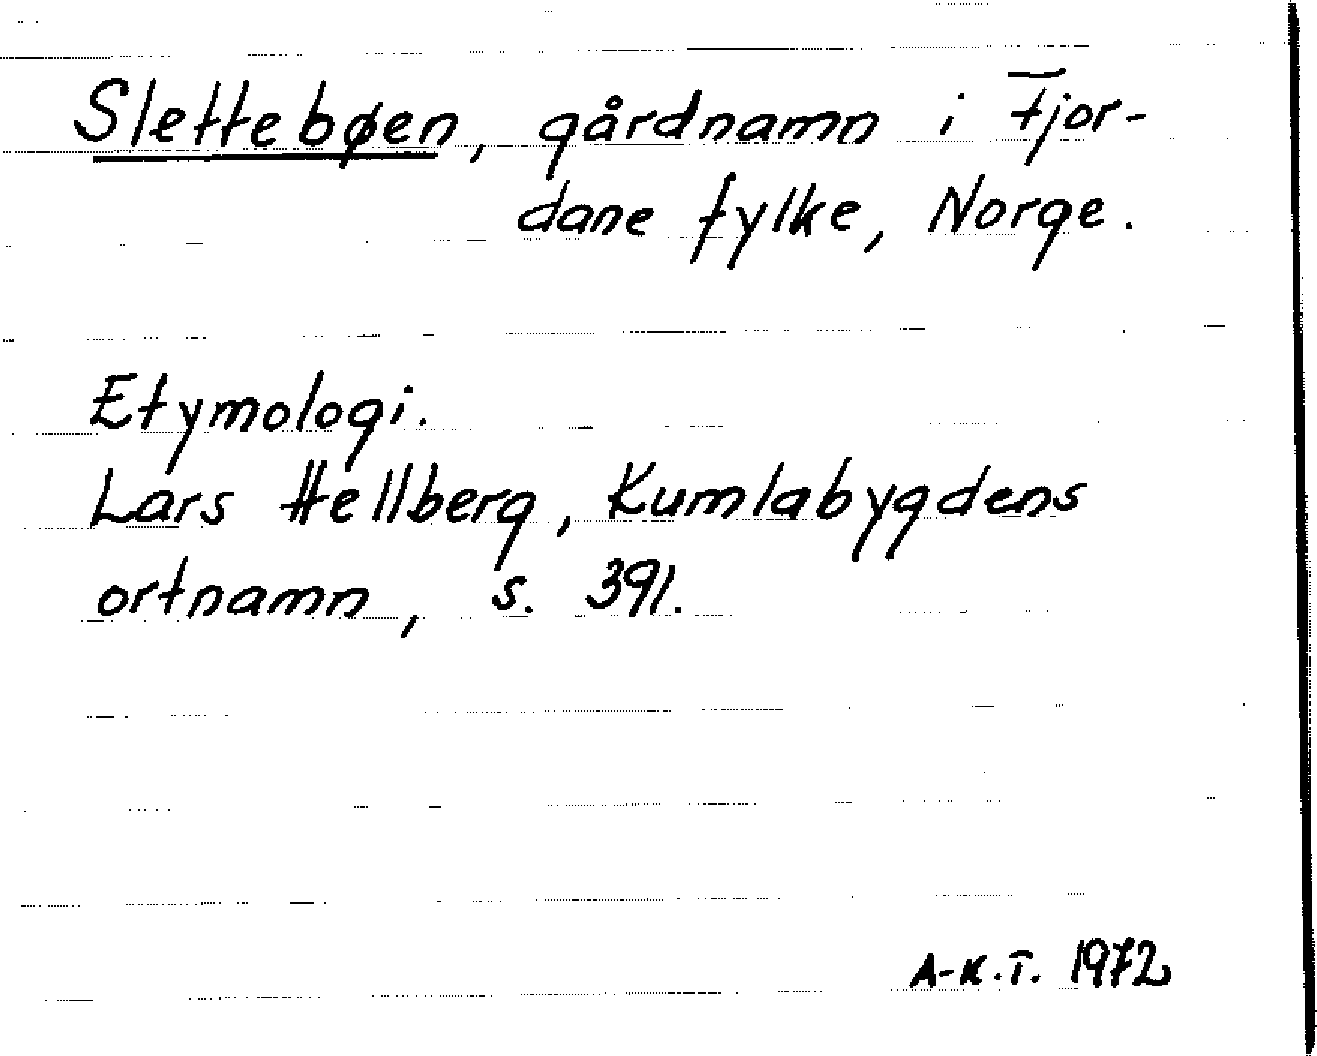 Slettebøen, gårdnamn i Fjor-
dane fylke, Norge.
Etymologi.
Lars Hellberg, Kumlabygdens
ortnamn, s. 391.
A-K.T. 1972